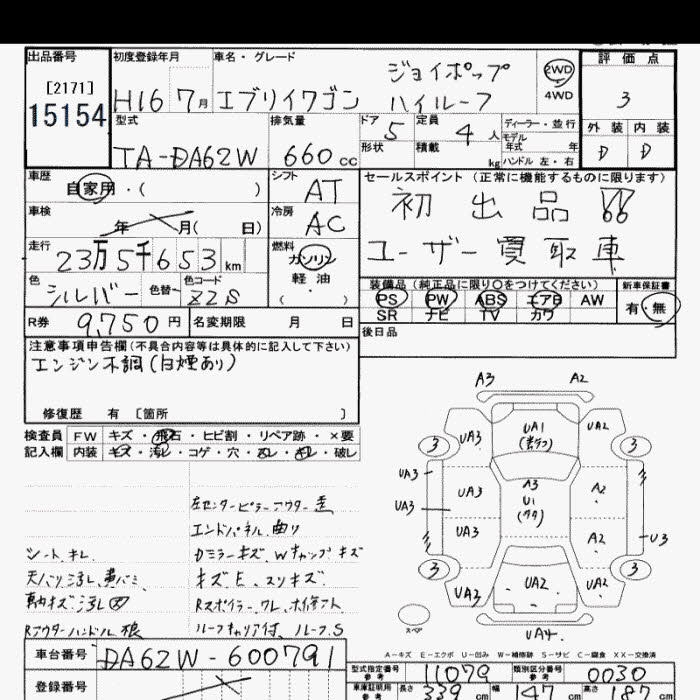 出品番号 初度登録年月 車名・グレード 評価点
[2171]
15154
H16 7月 エブリイワゴン ジョイポップ ハイルーフ 2WD 4WD 3
型式 排気量 ドア 5 定員 4人 ディーラー・並行 外装 内装
形状 積載 kg モデル年式 年 ハンドル 左・右
TA-DA62W 660cc D D
車歴 自家用・( ) シフト AT セールスポイント(正常に機能するものに限ります)
車検 年 月( 日) 冷房 AC 初出品!!
走行 23万5千653km 燃料 ガソリン・軽油・( ) ユーザー買取車
色 シルバー 色替 色コード Z2S
装備品(純正品に限り○をつけてください) 新車保証書
PS PW ABS エアB AW 有・無
SR ナビ TV カワ
R券 9,750円 名変期限 月 日 後日品
注意事項申告欄(不具合内容等は具体的に記入して下さい)
エンジン不調(白煙あり)
修復歴 有 [箇所 ]
検査員 FW キズ・飛石・ヒビ割・リペア跡・×要
記入欄 内装 キズ・汚レ・コゲ・穴・スレ・キレ・破レ
左センターピラーアウター歪
エンドパネル曲り
シートキレ
カミラーキズ、Wキャップキズ
キズE、スリキズ
Rスポイラーワレ、
Rアウターハンドル
ルーフキャリア付、ルーフS
A3 A2
UA1
UA3 UA2
3 3
UA3 UA3 A3 A2
U1
UA3 UA3 A2 U3
3 3
UA3 UA2 UA2
UA4
スペア
A-キズ E-エクボ U-凹み W-補修跡 S-サビ C-腐食 XX-交換済
車台番号 DA62W-600791
型式指定番号 11079 類別区分番号 0030
登録番号
車庫証明用参考 長さ 339cm 幅 147cm 高さ 187cm